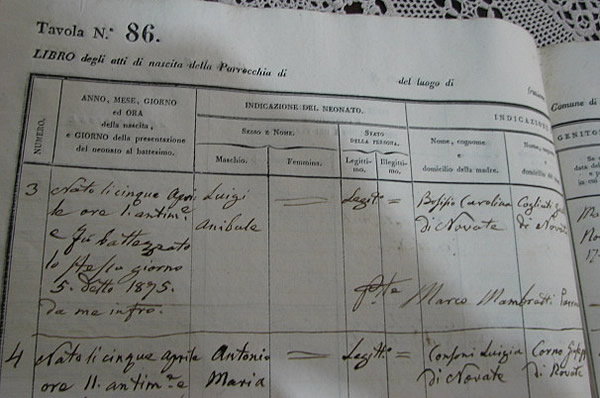 Tavola N.° 86.
LIBRO degli atti di nascita della Parrocchia di del luogo di
Comune di
NUMERO.
ANNO, MESE, GIORNO
ed ORA
della nascita,
e GIORNO della presentazione
del neonato al battesimo.
INDICAZIONE DEL NEONATO.
SESSO E NOME.
Maschio.
Femmina.
STATO
DELLA PERSONA.
Legitti-
mo.
Illegitti-
mo.
INDICAZIONE
GENITO
Nome, cognome
e
domicilio della madre.
Nome,
e
domicilio
3
Nato li cinque Apri
le ore 11. antim.e
e fu battezzato
lo stesso giorno
5. detto 1895.
da me infro.
Luigi
Anibale
=
Legit.o
=
Carolina
di Novate
Cogliati
di Novate
Marco
4
Nato li cinque Aprile
ore 11. antim.e e
Antonio
Maria
=
Legitt.o
=
Consoni Luigia
di Novate
Corno
di Novate